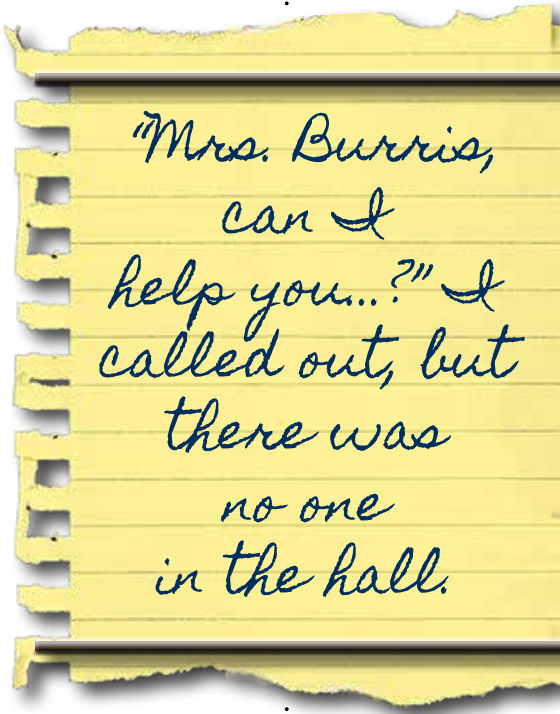 "Mrs. Burris,
can I
help you...?" I
called out, but
there was
no one
in the hall.